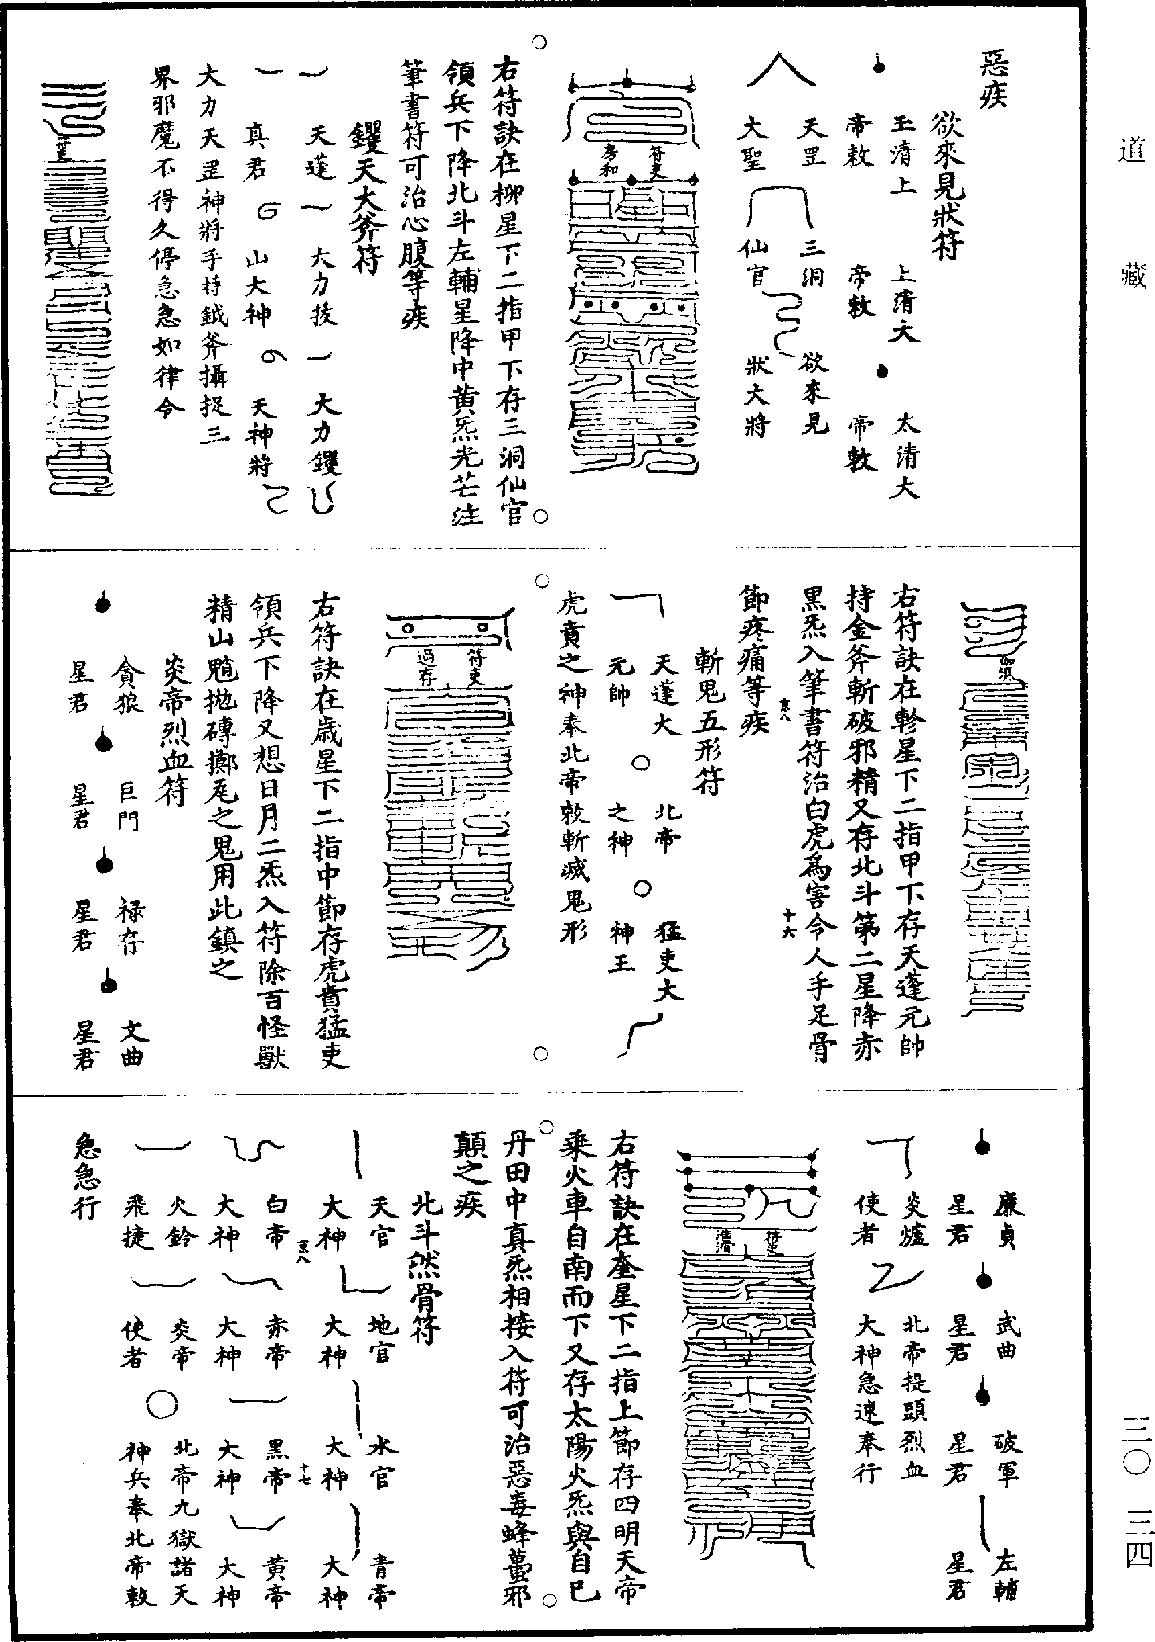 道藏
惡疾
欲來見狀符
玉清上帝敕
上清大帝敕
太清大帝敕
天罡大聖
三洞仙官
欲來見狀大將
符吏
右符訣在柳星下二指甲下存三洞仙官
領兵下降北斗左輔星降中黃炁光芒注
筆書符可治心腹等疾
钁天大斧符
天蓬真君
大力
山大神
大力钁天神將
大力天罡神將手持鉞斧攝捉三
界邪魔不得久停急急如律令
右符訣在軫星下二指甲下存天蓬元帥
持金斧斬破邪精又存北斗第二星降赤
黑炁入筆書符治白虎為害令人手足骨
節疼痛等疾
十六
斬鬼五形符
天蓬大元帥
北帝之神
猛吏大神王
虎賁之神奉北帝敕斬滅鬼形
符吏
右符訣在歲星下二指中節存虎賁猛吏
領兵下降又想日月二炁入符除百怪獸
精山魈拋磚擲瓦之鬼用此鎮之
炎帝烈血符
貪狼星君
巨門星君
祿存星君
文曲星君
廉貞星君
武曲星君
破軍星君
左輔星君
炎爐使者
北帝提頭烈血
大神急速奉行
右符訣在奎星下二指上節存四明天帝
乘火車自南而下又存太陽火炁與自己
丹田中真炁相接入符可治惡毒蜂蠆邪
顛之疾
北斗然骨符
天官大神
地官大神
水官大神
青帝大神
十七
白帝大神
赤帝大神
黑帝大神
黃帝大神
火鈴飛捷
炎帝使者
北帝九獄諸天
神兵奉北帝敕
急急行
三〇
三四